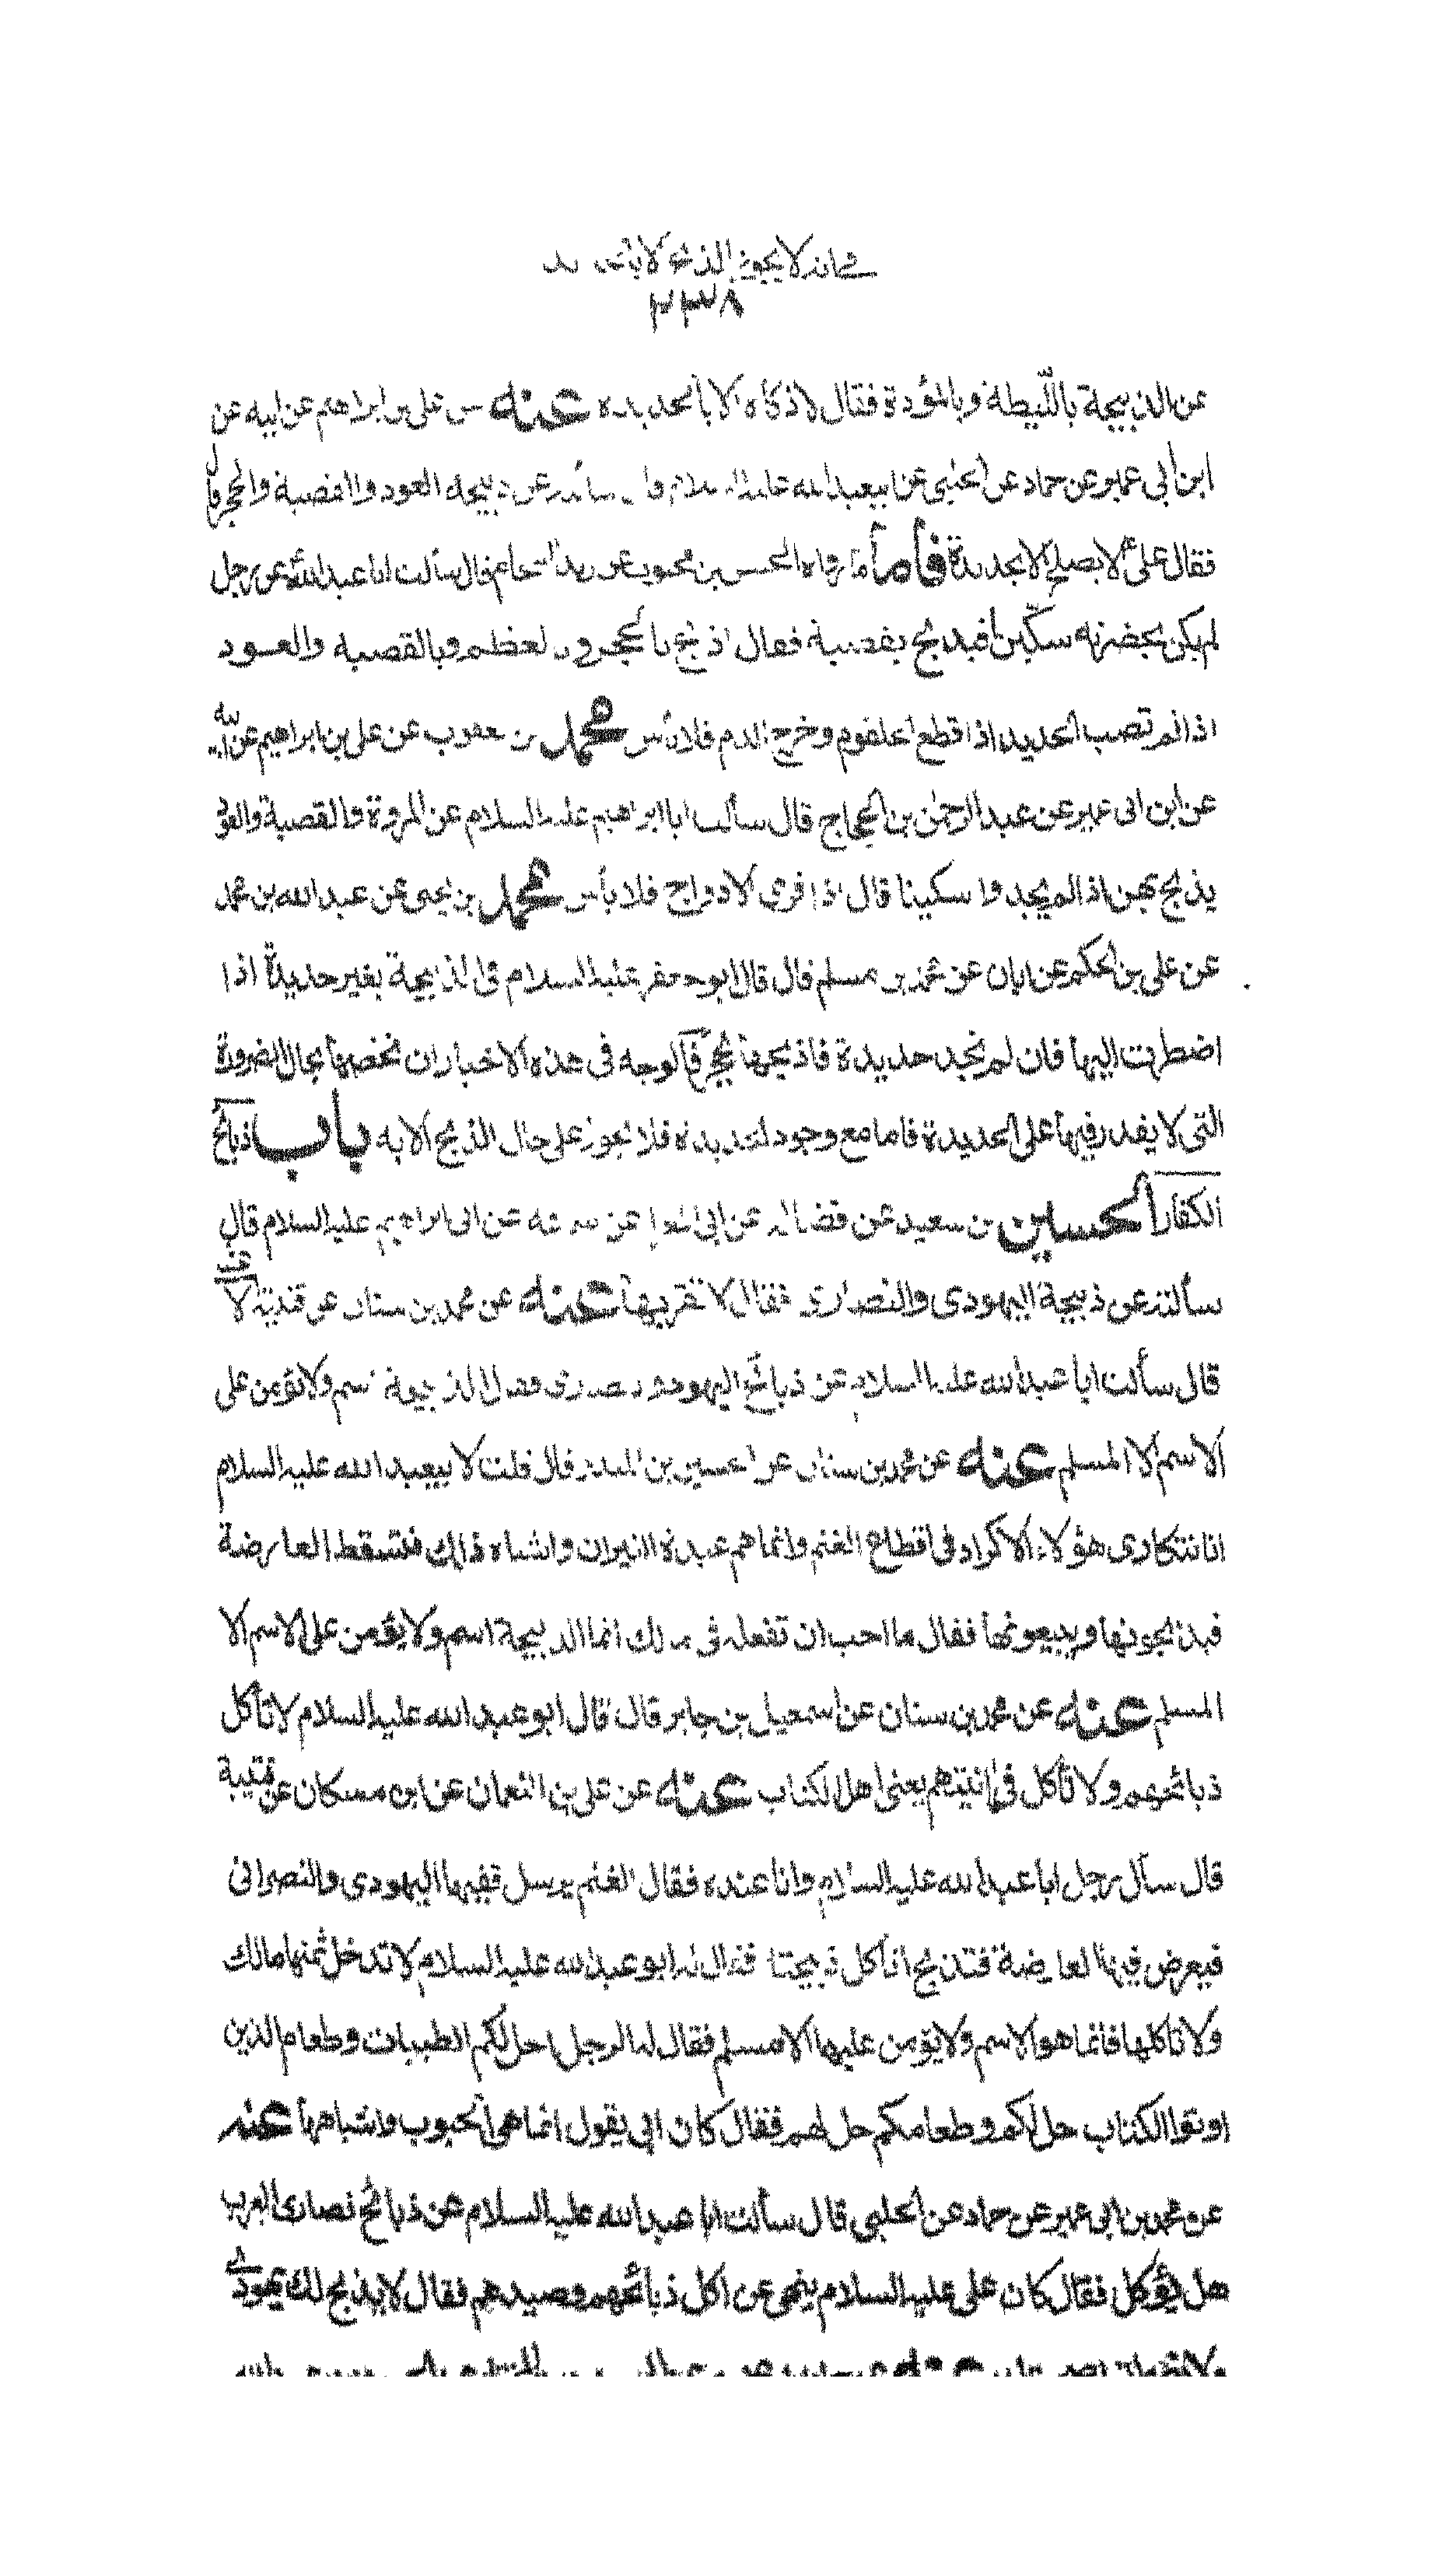 في انه لا يجوز الذبح الا بالحديد
٢٣٨
عن الذبيحة بالليطة وبالمروة فقال لا ذكاة الا بالحديدة عنه عن علي بن ابراهيم عن ابيه عن
ابن أبي عمير عن حماد عن الحلبي عن ابيعبد الله عليه السلام قال سألته عن ذبيحة العود والقصبة والحجر قال
فقال علي لا يصلح الا بحديدة فأما ما رواه الحسن بن محبوب عن زيد الشحام قال سألت ابا عبد الله عن رجل
لم يكن بحضرته سكين أفيذبح بقصبة فقال اذبح بالحجر وبالعظم وبالقصبة والعود
اذا لم تصب الحديد اذا قطع الحلقوم وخرج الدم فلا بأس محمد بن يعقوب عن علي بن ابراهيم عن ابيه
عن ابن ابى عمير عن عبد الرحمن بن الحجاج قال سألت ابا ابراهيم عليه السلام عن المروة والقصبة والعود
يذبح بهن اذا لم يجدوا سكينا قال اذا فرى الاوداج فلا بأس محمد بن يحيى عن عبد الله بن محمد
عن علي بن الحكم عن ابان عن محمد بن مسلم قال قال ابو جعفر عليه السلام في الذبيحة بغير حديدة اذا
اضطررت اليها فان لم تجد حديدة فاذبحها بحجر فالوجه في هذه الاخبار ان نخصها بحال الضرورة
التي لا يقدر فيها على الحديدة فاما مع وجود الحديدة فلا يجوز على حال الذبح الا به باب ذبائح
الكفار الحسين بن سعيد عن فضالة عن ابي المغرا عن سماعة عن ابي ابراهيم عليه السلام قال
سألته عن ذبيحة اليهودى والنصرانى فقال لا تقربها عنه عن محمد بن سنان عن قتيبة الا
قال سألت ابا عبد الله عليه السلام عن ذبائح اليهود والنصارى فقال الذبيحة اسم ولا يؤمن على
الاسم الا المسلم عنه عن محمد بن سنان عن الحسين بن المنذر قال قلت لا بيعبد الله عليه السلام
انا نتكارى هؤلاء الاكراد في اقطاع الغنم وانما هم عبدة النيران واشباه ذلك فتسقط العارضة
فيذبحونها ويبيعونها فقال ما احب ان تفعله في مالك انما الذبيحة اسم ولا يؤمن على الاسم الا
المسلم عنه عن محمد بن سنان عن اسمعيل بن جابر قال قال ابو عبد الله عليه السلام لا تأكل
ذبائحهم ولا تأكل في انيتهم يعنى اهل الكتاب عنه عن علي بن النعمان عن ابن مسكان عن قتيبة
قال سأل رجل ابا عبد الله عليه السلام وانا عنده فقال الغنم يرسل ففيها اليهودى والنصرانى
فيعرض فيها العارضة فتذبح انأكل ذبيحتا فقال له ابو عبد الله عليه السلام لا تدخل ثمنها مالك
ولا تاكلها فانما هو الاسم ولا يؤمن عليها الا مسلم فقال له الرجل احل لكم الطيبات وطعام الذين
اوتوا الكتاب حل لكم وطعامكم حل لهم فقال كان ابي يقول انما هى الحبوب واشباهها عنه
عن محمد بن ابي عمير عن حماد عن الحلبي قال سألت ابا عبد الله عليه السلام عن ذبائح نصارى العرب
هل يؤكل فقال كان علي عليه السلام ينهى عن اكل ذبائحهم وصيدهم فقال لا يذبح لك يهودي